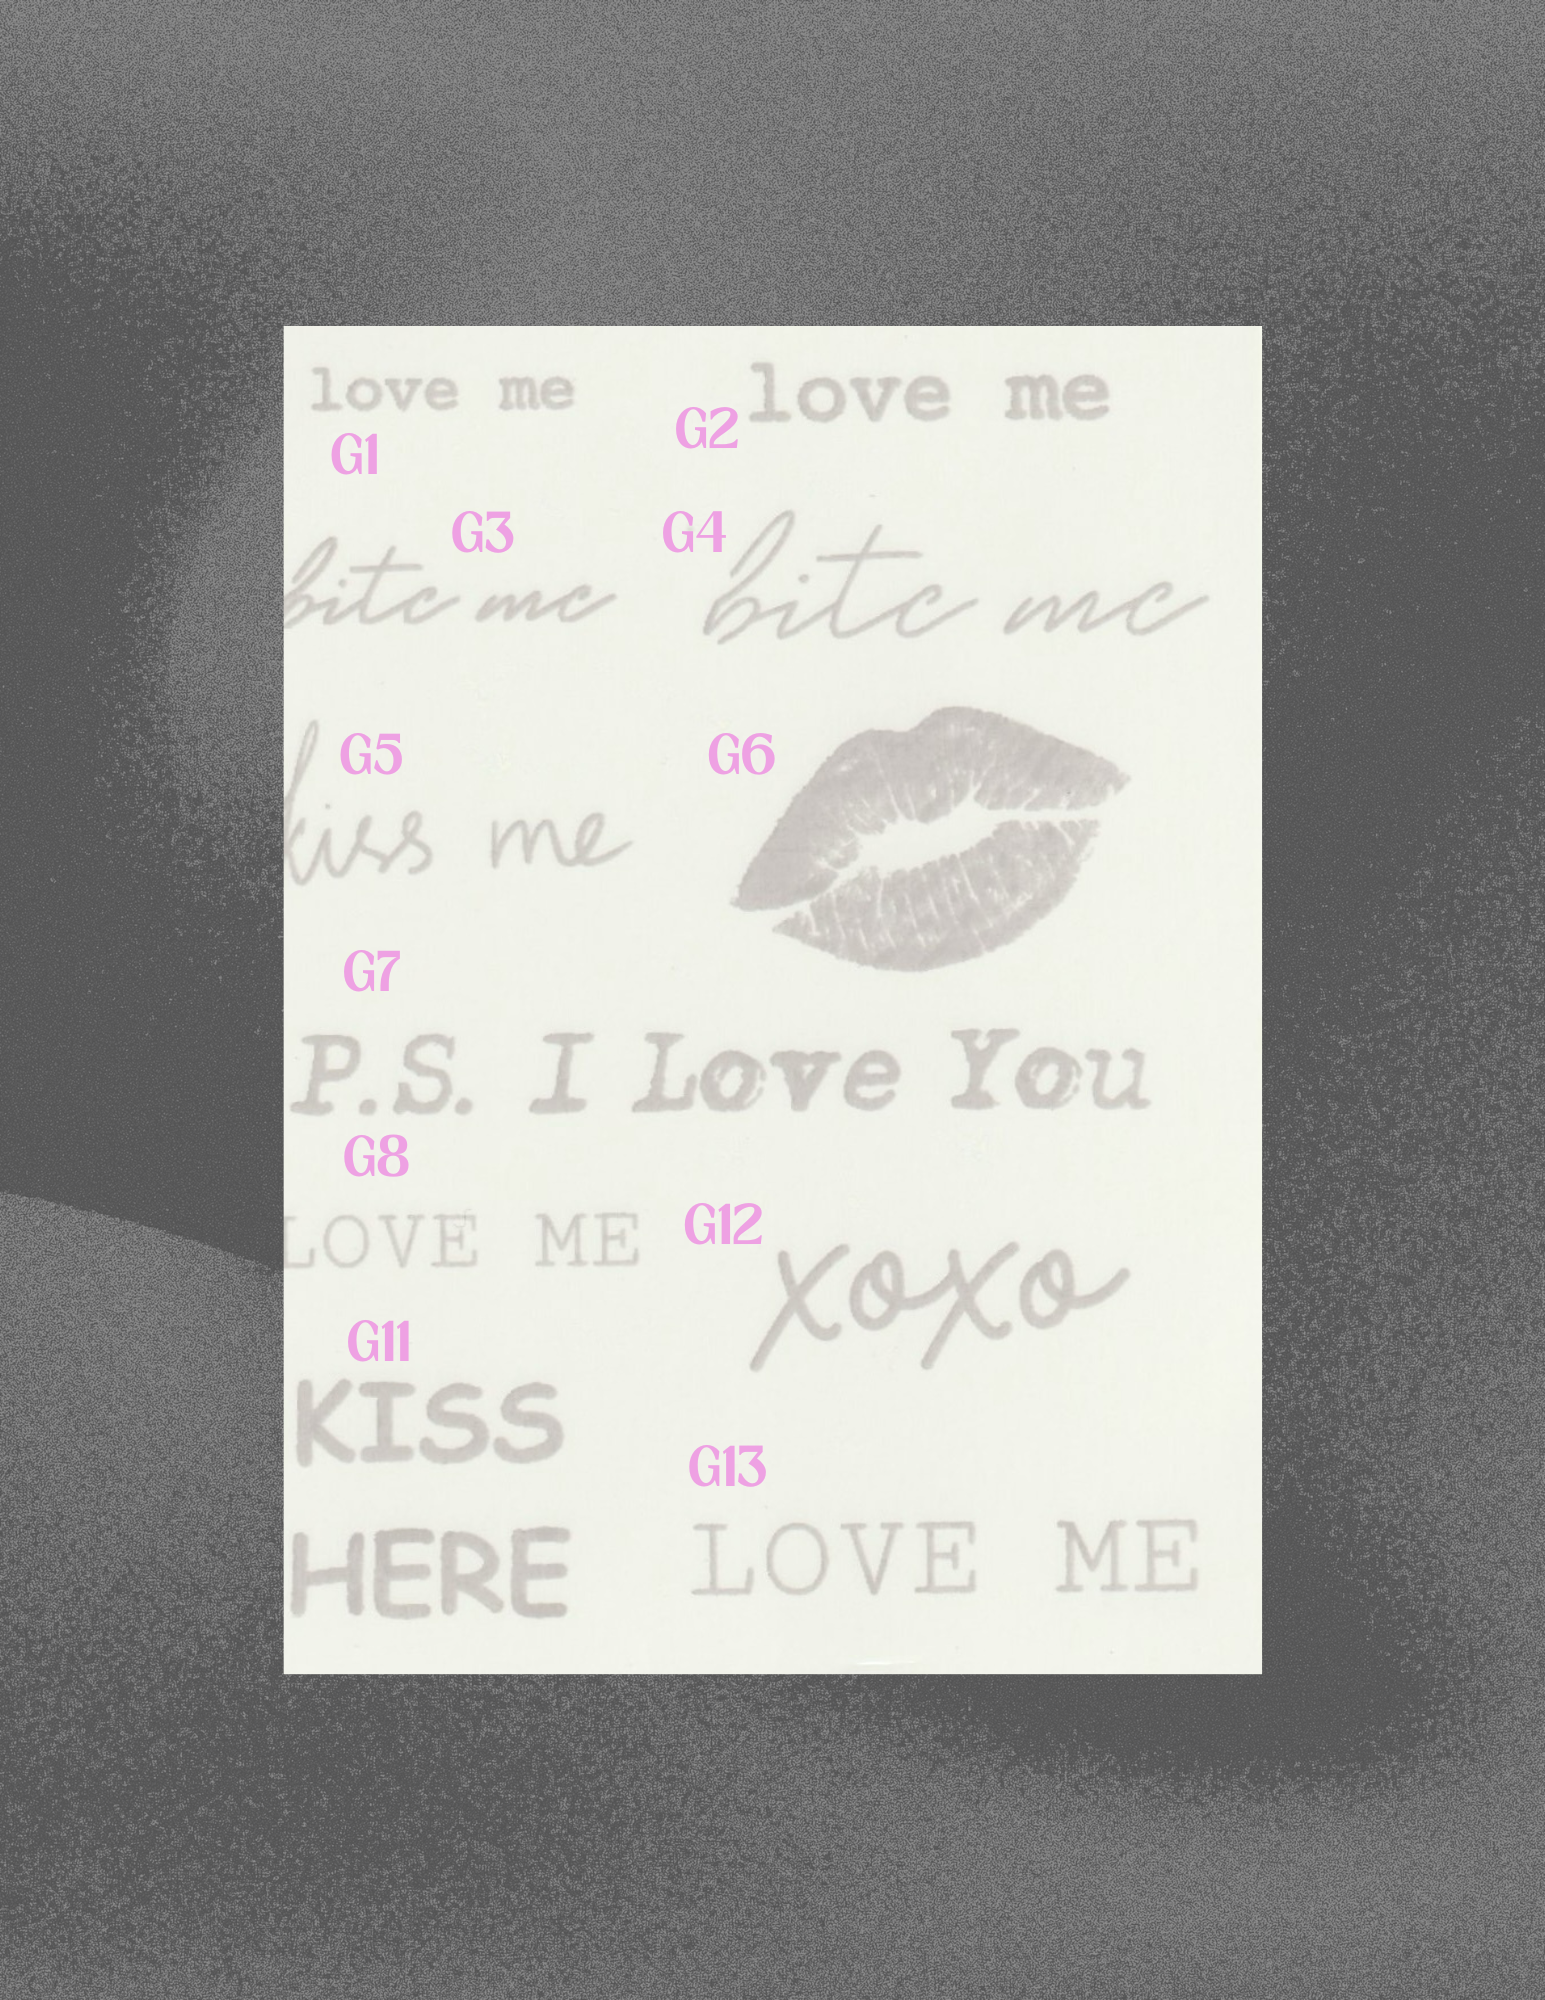 love me
G1
G2
love me
G3
bite me
G4
bite me
G5
kiss me
G6
G7
P.S. I Love You
G8
LOVE ME
G12
xoxo
G11
KISS
HERE
G13
LOVE ME